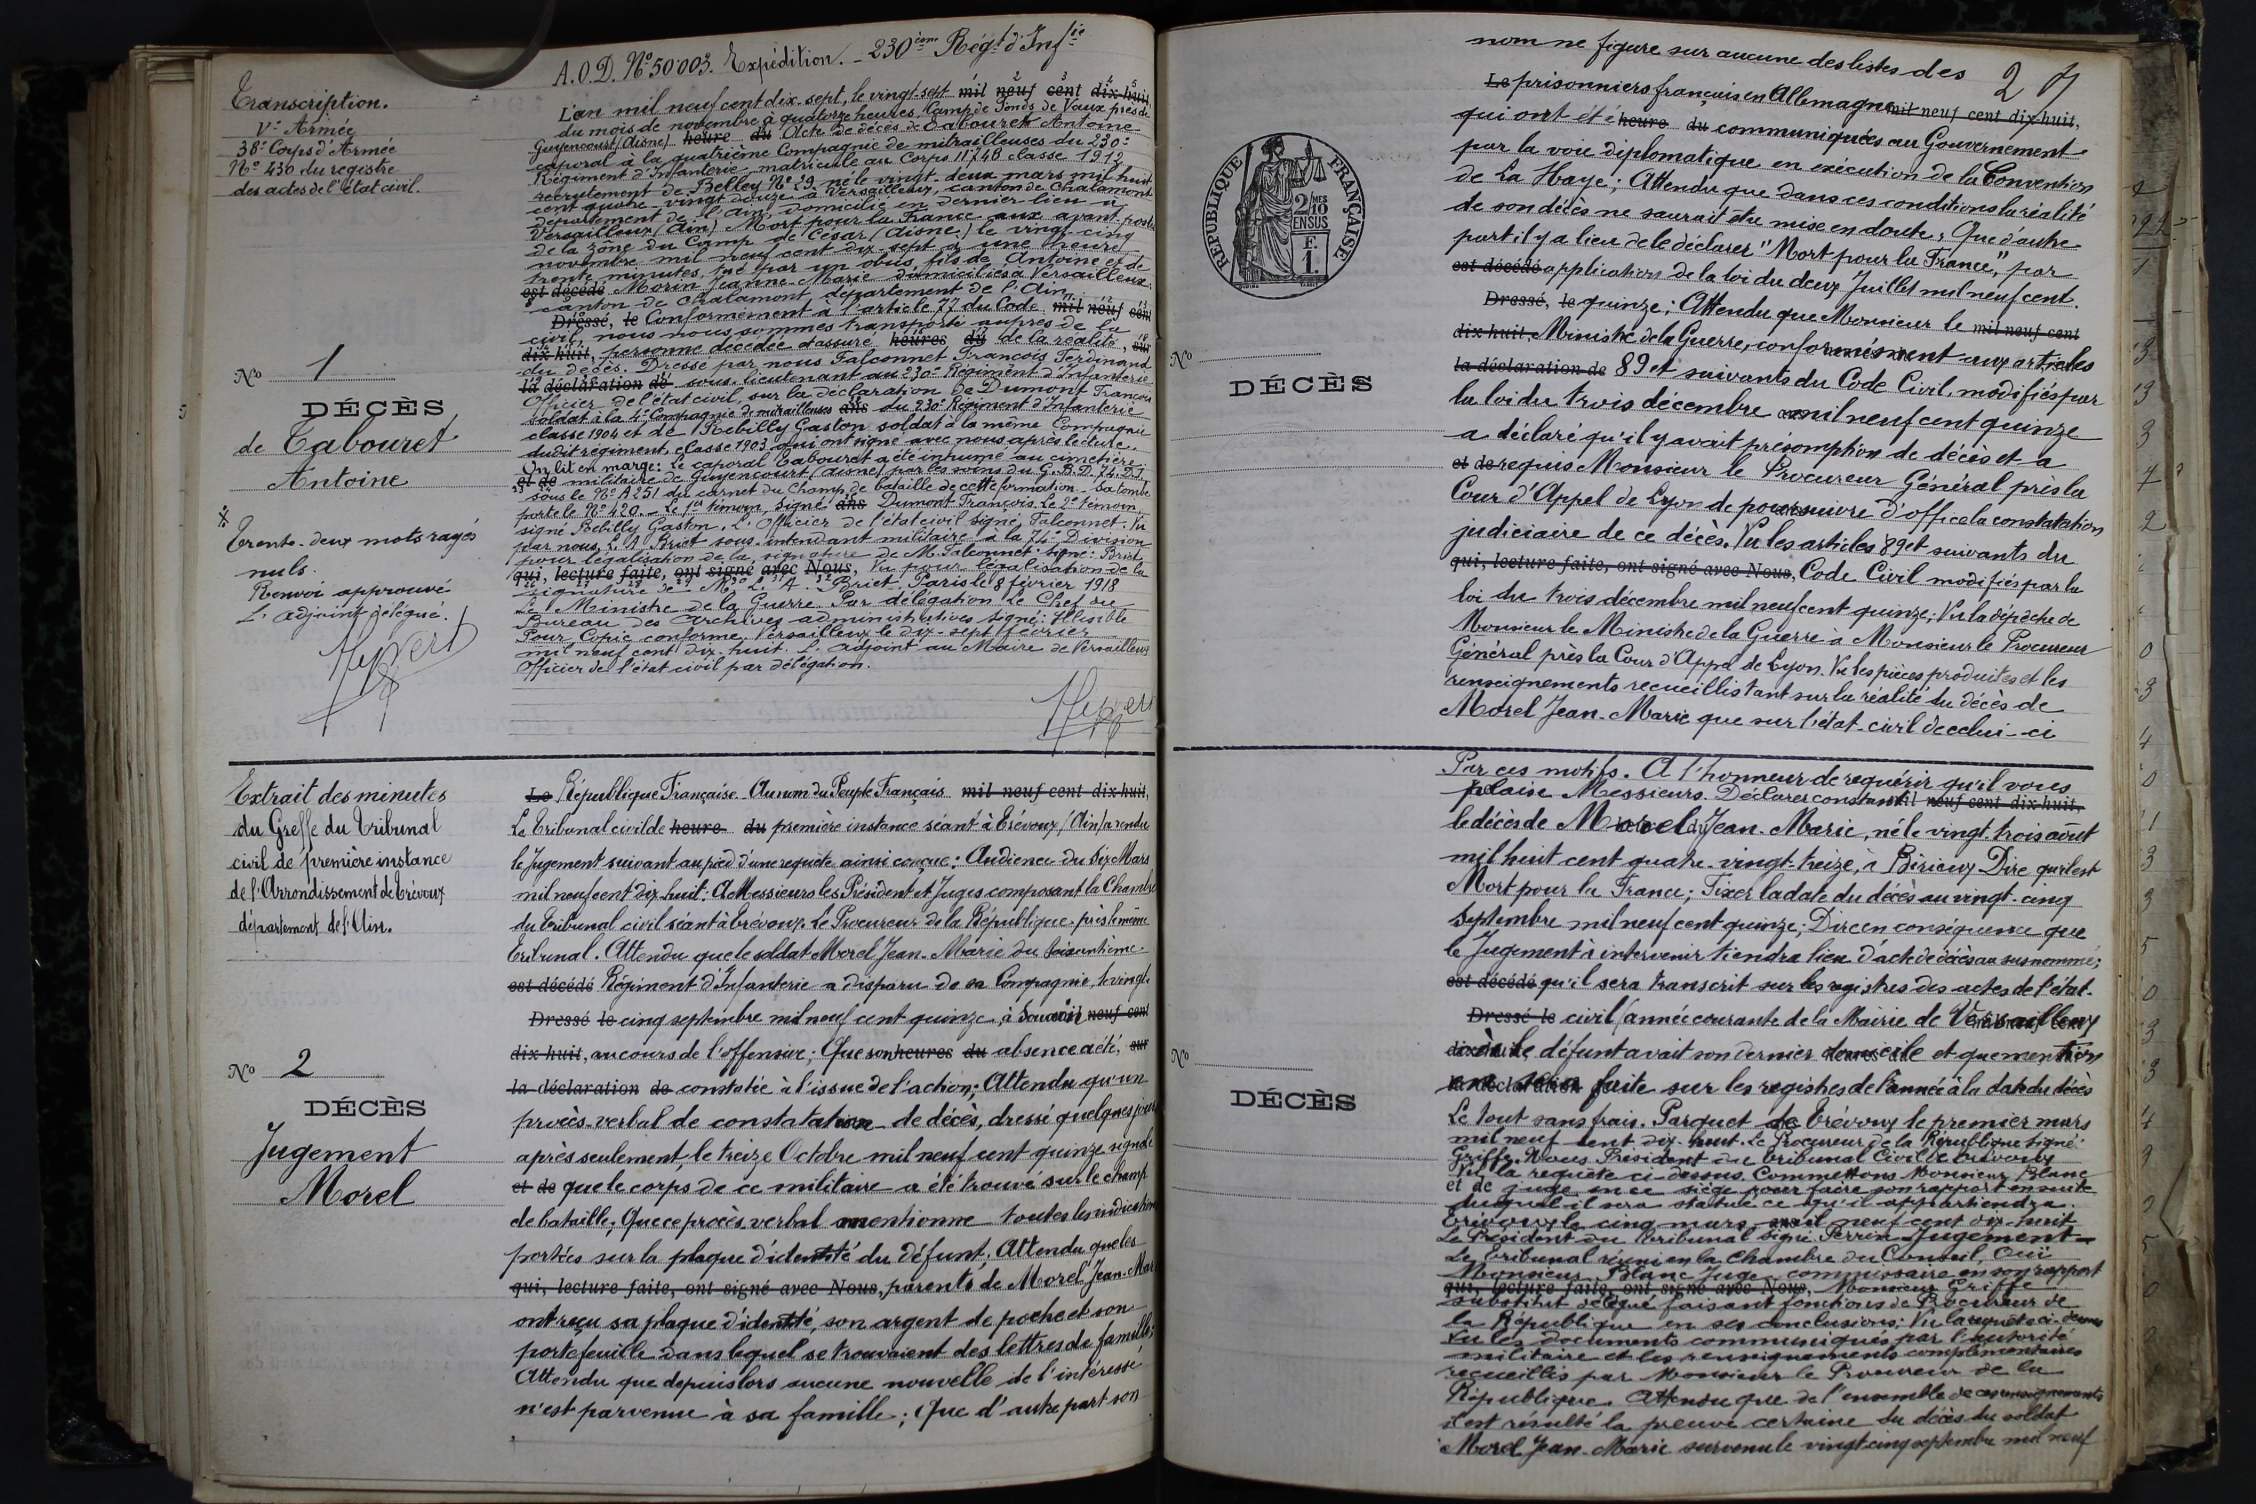 Transcription.
Ve Armée
38e Corps d'Armée
No 430 du registre
des actes de l'état civil.
No 1
DÉCÈS
de Tabouret
Antoine
Trente-deux mots rayés
nuls.
Renvoi approuvé
L'adjoint délégué.
A.O.D. No 50003. Expédition. - 230ème Régt d'Infie
L'an mil neuf cent dix-sept, le vingt-sept mil neuf cent dix-huit,
du mois de novembre à quatorze heures, Camp de Fonds de Vaux près de
Guyencourt (Aisne) heure du Acte de décès de Tabouret Antoine
caporal à la quatrième Compagnie de mitrailleuses du 230e
Régiment d'Infanterie - matricule au Corps 11746 classe 1912
recrutement de Belley No 29 né le vingt-deux mars mil huit
cent quatre-vingt douze à Versailleux, canton de Chalamont
département de l'Ain, domicilié en dernier lieu à
Versailleux (Ain) Mort pour la France aux avant-postes
de la zône du Camp de César (Aisne) le vingt-cinq
novembre mil neuf cent dix-sept à une heure
trente minutes, tué par un obus, fils de Antoine et de
est décédé Morin Jeanne-Marie domiciliés à Versailleux,
canton de Chalamont, département de l'Ain
Dressé, le Conformément à l'article 77 du Code mil neuf cent
civil, nous nous sommes transporté auprès de la
dix-huit, personne décédée et assuré heures du de la réalité, sur
du décès. Dressé par nous Falconnet François Ferdinand
la déclaration de sous-lieutenant au 230e Régiment d'Infanterie
Officier de l'état civil, sur la déclaration de Dumont François
soldat à la 4e Compagnie de mitrailleuses ans du 230e Régiment d'Infanterie
classe 1904 et de Rebilly Gaston soldat à la même Compagnie
dudit régiment, classe 1903 qui ont signé avec nous après lecture.
On lit en marge: Le caporal Tabouret a été inhumé au cimetière
et de militaire de Guyencourt (Aisne) par les soins du G.B.D. 74. D.I.
sous le No A251 du carnet du Champ de bataille de cette formation - Sa tombe
porte le No 420. - Le 1er témoin, signé ans Dumont François. Le 2e témoin,
signé Rebilly Gaston. L'Officier de l'état civil signé, Falconnet. Vu
par nous, L. A. Briet sous-intendant militaire à la 74e Division
pour légalisation de la signature de M. Falconnet signé: Briet
qui, lecture faite, ont signé avec Nous, Vu pour légalisation de la
signature de Mr L. A. Briet. Paris le 8 février 1918
Le Ministre de la Guerre Par délégation Le Chef du
Bureau des Archives administratives signé: Illisible
Pour Copie conforme, Versailleux le dix-sept février
mil neuf cent dix-huit. L'adjoint au Maire de Versailleux
Officier de l'état civil par délégation.
Extrait des minutes
du Greffe du Tribunal
civil de première instance
de l'Arrondissement de Trévoux
département de l'Ain.
No 2
DÉCÈS
Jugement
Morel
La République Française. Au nom du Peuple Français mil neuf cent dix-huit,
Le Tribunal civil de heure du première instance séant à Trévoux (Ain) a rendu
le Jugement suivant au pied d'une requête ainsi conçue: Audience du Six Mars
mil neuf cent dix huit: A Messieurs les Président et Juges composant la Chambre
du Tribunal civil séant à Trévoux. Le Procureur de la République près le même
Tribunal. Attendu que le soldat Morel Jean-Marie du
est décédé Régiment d'Infanterie a disparu de sa Compagnie, le vingt-
Dressé le cinq septembre mil neuf cent quinze, à neuf cent
dix-huit, au cours de l'offensive; Que son heures du absence a été, sur
la déclaration de constatée à l'issue de l'action; Attendu qu'un
procès-verbal de constatation de décès, dressé quelques jours
après seulement, le treize Octobre mil neuf cent quinze signale
et de que le corps de ce militaire a été trouvé sur le champ
de bataille; Que ce procès verbal mentionne toutes les indications
portées sur la plaque d'identité du défunt; Attendu que les
qui, lecture faite, ont signé avec Nous, parents de Morel Jean-Mar
ont reçu sa plaque d'identité, son argent de poche et son
portefeuille dans lequel se trouvaient des lettres de famille;
Attendu que depuis lors aucune nouvelle de l'intéressé
n'est parvenue à sa famille; Que d'autre part son
2
RÉPUBLIQUE FRANÇAISE
2/10
MES
EN SUS
F.
1.
No
DÉCÈS
nom ne figure sur aucune des listes des
Le prisonniers français en Allemagne mil neuf cent dix-huit,
qui ont été heure du communiquées au Gouvernement
par la voie diplomatique en exécution de la Convention
de La Haye; Attendu que dans ces conditions la réalité
de son décès ne saurait être mise en doute, Que d'autre
part il y a lieu de le déclarer "Mort pour la France", par
est décédé application de la loi du deux Juillet mil neuf cent
Dressé, le quinze; Attendu que Monsieur le mil neuf cent
dix-huit, Ministre de la Guerre, conformément aux articles
la déclaration de 89 et suivants du Code Civil, modifiés par
la loi du trois décembre mil neuf cent quinze
a déclaré qu'il y avait présomption de décès et a
et de requis Monsieur le Procureur Général près la
Cour d'Appel de Lyon de poursuivre d'office la constatation
judiciaire de ce décès. Vu les articles 89 et suivants du
qui, lecture faite, ont signé avec Nous, Code Civil modifiés par la
loi du trois décembre mil neuf cent quinze; Vu la dépêche de
Monsieur le Ministre de la Guerre à Monsieur le Procureur
Général près la Cour d'Appel de Lyon. Vu les pièces produites et les
renseignements recueillis tant sur la réalité du décès de
Morel Jean-Marie que sur l'état-civil de celui-ci
No
DÉCÈS
Par ces motifs. A l'honneur de requérir qu'il vous
plaise Messieurs. Déclarer constant neuf cent dix-huit.
le décès de Morel Jean-Marie, né le vingt-trois août
mil huit cent quatre-vingt-treize, à Birieux Dire qu'il est
Mort pour la France; Fixer la date du décès au vingt-cinq
Septembre mil neuf cent quinze; Dire en conséquence que
le Jugement à intervenir tiendra lieu d'acte de décès au susnommé;
est décédé qu'il sera transcrit sur les registres des actes de l'état-
Dressé le civil (année courante de la Mairie de Versailleux
où le défunt avait son dernier domicile et que mention
en sera faite sur les registres de l'année à la date du décès
Le tout sans frais. Parquet de Trévoux le premier mars
mil neuf cent dix-huit. Le Procureur de la République signé:
Griffe. Nous Président du Tribunal Civil de Trévoux
Vu la requête ci-dessus. Commettons Monsieur Blanc
et de juge en ce siège pour faire son rapport ensuite
duquel il sera statué ce qu'il appartiendra.
Trévoux le cinq mars mil neuf cent dix-huit
Le Président du Tribunal signé Perrin Jugement
Le Tribunal réuni en la Chambre du Conseil, Ouï
Monsieur Blanc Juge commissaire en son rapport
qui, lecture faite, ont signé avec Nous, Monsieur Griffe
substitut délégué faisant fonctions de Procureur de
la République en ses conclusions; Vu la requête ci-dessus
Vu les documents communiqués par l'autorité
militaire et les renseignements complémentaires
recueillis par Monsieur le Procureur de la
République. Attendu que de l'ensemble de ces renseignements
il est résulté la preuve certaine du décès du soldat
Morel Jean-Marie survenu le vingt-cinq septembre mil neuf